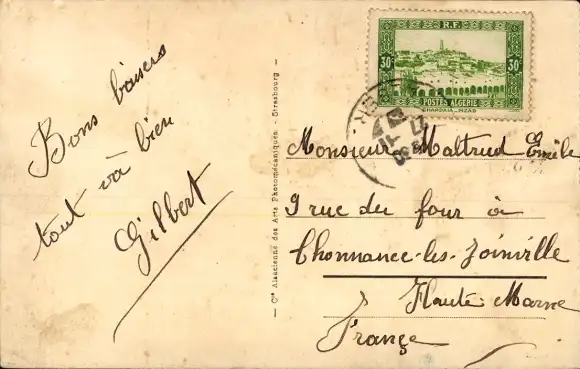 Bons baisers
tout va bien
Gilbert
Cie Alsacienne des Arts Photomécaniques - Strasbourg
R.F.
30c 30c
POSTES ALGERIE
GHARDAIA-MZAB
Monsieur Maltrud Emile
9 rue du four à
Chonnance-les-Joinville
Haute Marne
France